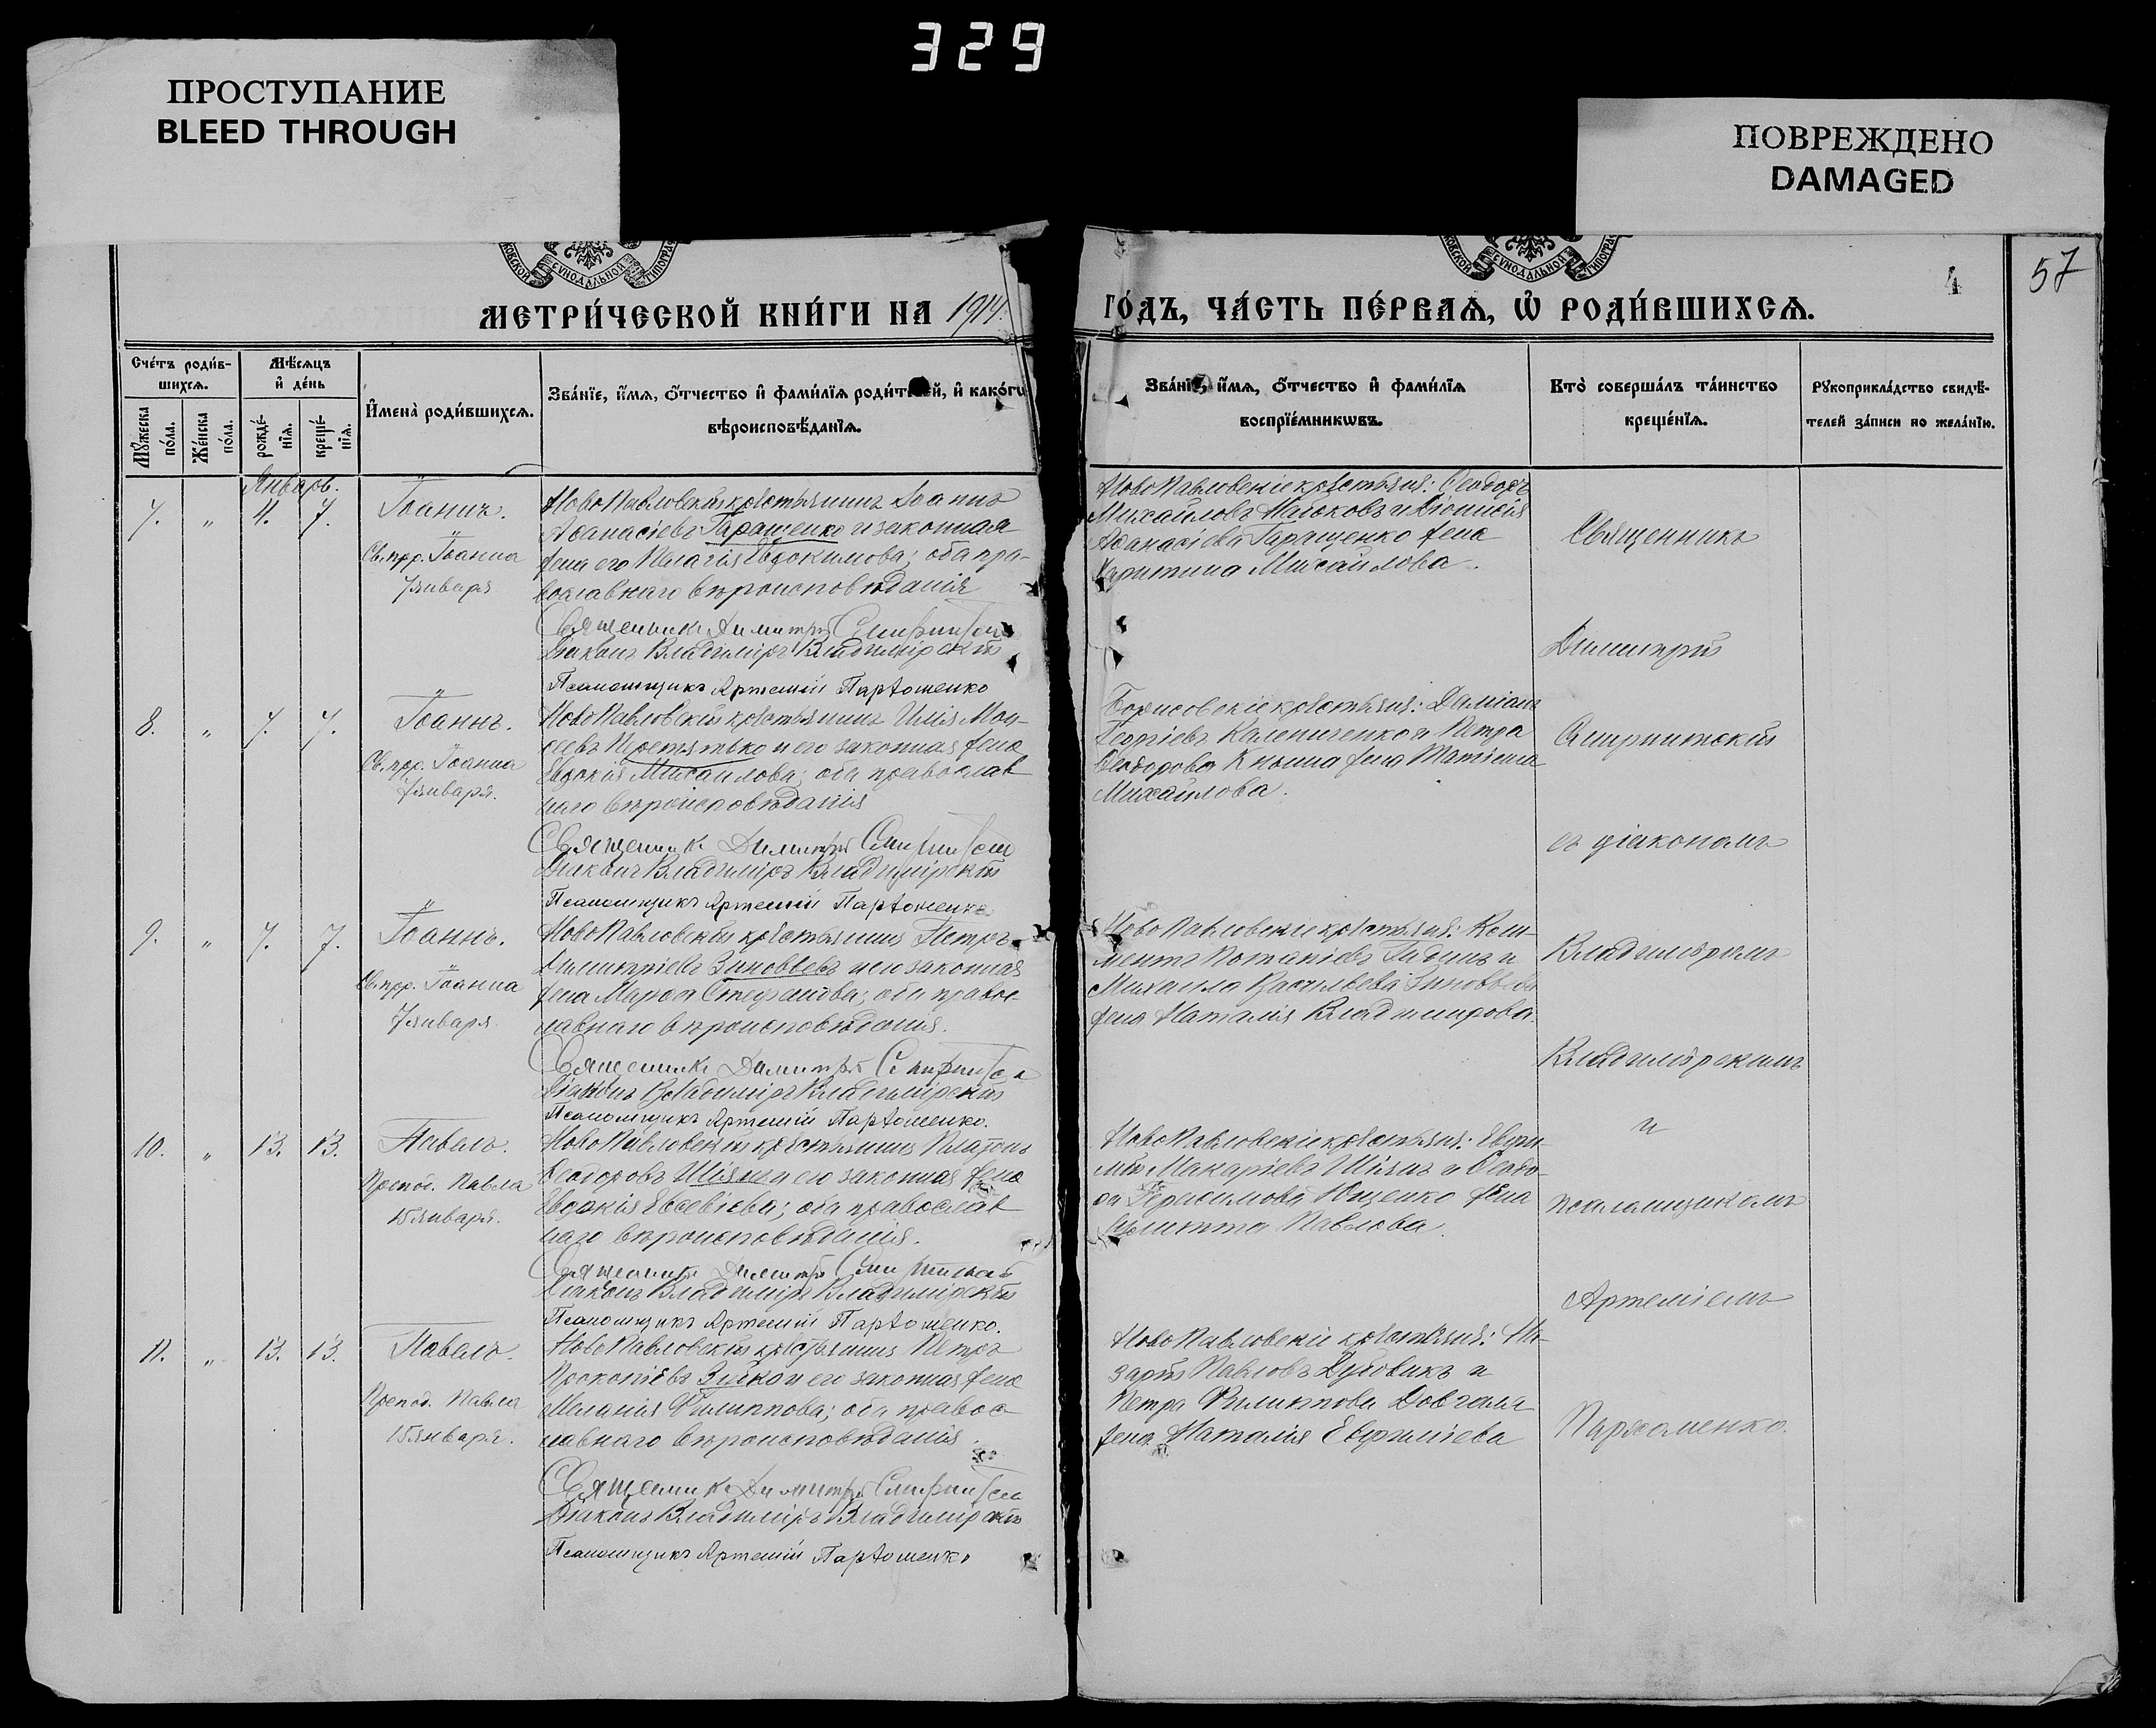 329
ПРОСТУПАНИЕ
BLEED THROUGH
ПОВРЕЖДЕНО
DAMAGED
57
4
МЕТРИ́ЧЕСКОЙ КНИ́ГИ НА 1914.
ГО́ДЪ, ЧА́СТЬ ПЕ́РВАѦ, Ѡ҆ РОДИ́ВШИХСѦ.
Сче́тъ роди́в-
шихсѧ.
Мꙋ́жеска по́ла.
Же́нска по́ла.
Мѣ́сѧцъ
и҆ де́нь
рожде́-
нїѧ.
креще́-
нїѧ.
И҆мена̀ роди́вшихсѧ.
Зва́нїе, и҆́мѧ, о҆́тчество и҆ фами́лїѧ роди́телей, и҆ како́гѡ
вѣроисповѣ́данїѧ.
Зва́нїе, и҆́мѧ, о҆́тчество и҆ фами́лїѧ
воспрїе́мникѡвъ.
Кто̀ соверша́лъ та́инство
креще́нїѧ.
Рꙋкоприкла́дство свидѣ́-
телей за́писи по жела́нїю.
Январь.
7. " 4. 7. Іоаннъ.
Св. пр. Іоанна
7 января
НовоПавловскій крестьянинъ Іоаннъ
Аѳанасіевъ Геращенко и законная
жена его Пелагія Евдокимова; оба пра-
вославнаго вѣроисповѣданія
Священникъ Димитрій
Діаконъ Владиміръ Владимірскій
Псаломщикъ Артемій Парѳоменко
НовоПавловскіе крестьяне: Ѳеодоръ
Михайловъ и Діонисія
Аѳанасіева Геращенко жена
Харитина Михайлова.
8. " 7. 7. Іоаннъ.
Св. пр. Іоанна
7 января.
НовоПавловскій крестьянинъ Илія Мои-
сеевъ Перетятько и его законная жена
Евдокія Михайлова; оба православ
наго вѣроисповѣданія
Священникъ Димитрій
Діаконъ Владиміръ Владимірскій
Псаломщикъ Артемій Парѳоменко
Борисовскіе крестьяне: Даміанъ
Георгіевъ Калениченко и Петра
Ѳеодорова жена
Михайлова.
9. " 7. 7. Іоаннъ.
Св. пр. Іоанна
7 января
НовоПавловскій крестьянинъ Петръ
Димитріевъ Зиновьевъ и его законная
жена Марѳа Стефанова; оба правос-
лавнаго вѣроисповѣданія.
Священникъ Димитрій
Діаконъ Владиміръ Владимірскій
Псаломщикъ Артемій Парѳоменко.
НовоПавловскіе крестьяне: Кли-
ментъ Потапіевъ и
Михаила Васильева Зиновьева
жена Наталія Владимирова.
10. " 13. 13. Павелъ.
Препод. Павла
15 января.
НовоПавловскій крестьянинъ Платонъ
Ѳеодоровъ Шіянъ и его законная жена
Евдокія Евсевіева; оба православ
наго вѣроисповѣданія.
Священникъ Димитрій
Діаконъ Владиміръ Владимірскій
Псаломщикъ Артемій Парѳоменко.
НовоПавловскіе крестьяне: Евѳи-
мій Макаріевъ Шіянъ и Ѳеодо-
ра Герасимова Ющенко жена
Павлова.
11. " 13. 13. Павелъ.
Препод. Павла
15 января.
НовоПавловскій крестьянинъ Петръ
Прокопіевъ Зуйко и его законная жена
Меланія Филиппова; оба правос-
лавнаго вѣроисповѣданія.
Священникъ Димитрій
Діаконъ Владиміръ Владимірскій
Псаломщикъ Артемій Парѳоменко
НовоПавловскіе крестьяне: На-
зарій Павловъ Духовикъ и
Петра Филиппова Довгаля
жена Наталія Евфиміева
Священникъ
Димитрій
съ діакономъ
Владиміромъ
Владимірскимъ
и
псаломщикомъ
Артеміемъ
Парѳоменко.